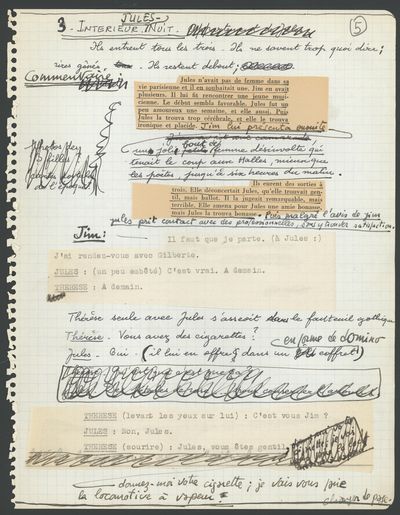 JULES
3 - INTERIEUR, NUIT.
5
Ils entrent tous les trois. Ils ne savent trop quoi dire ;
rires gênés. Ils restent debout ;
Commentaire
Jules n'avait pas de femme dans sa
vie parisienne et il en souhaitait une. Jim en avait
plusieurs. Il lui fit rencontrer une jeune musi-
cienne. Le début sembla favorable. Jules fut un
peu amoureux une semaine, et elle aussi. Puis
Jules la trouva trop cérébrale, et elle le trouva
ironique et placide. Jim lui présenta ensuite
une jolie femme désinvolte qui
tenait le coup aux Halles, mieux que
les poètes jusqu'à six heures du matin.
Photos des
3 filles
de l'époque
Ils eurent des sorties à
trois. Elle déconcertait Jules, qu'elle trouvait gen-
til, mais ballot. Il la jugeait remarquable, mais
terrible. Elle amena pour Jules une amie bonasse,
mais Jules la trouva bonasse. Puis malgré l'avis de Jim
Jules prit contact avec des professionnelles, sans y trouver satisfaction.
Jim :
Il faut que je parte. (à Jules :)
J'ai rendez-vous avec Gilberte.
JULES : (un peu embêté) C'est vrai. A demain.
THERESE : A demain.
Thérèse seule avec Jules s'asseoit dans le fauteuil gothique
Thérèse. Vous avez des cigarettes ?
en forme de domino
Jules. Oui. (il lui en offre dans un coffret)
THERESE (levant les yeux sur lui) : C'est vous Jim ?
JULES : Non, Jules.
THERESE (sourire) : Jules, vous êtes gentil
donnez-moi votre cigarette ; je vais vous faire
la locomotive à vapeur !